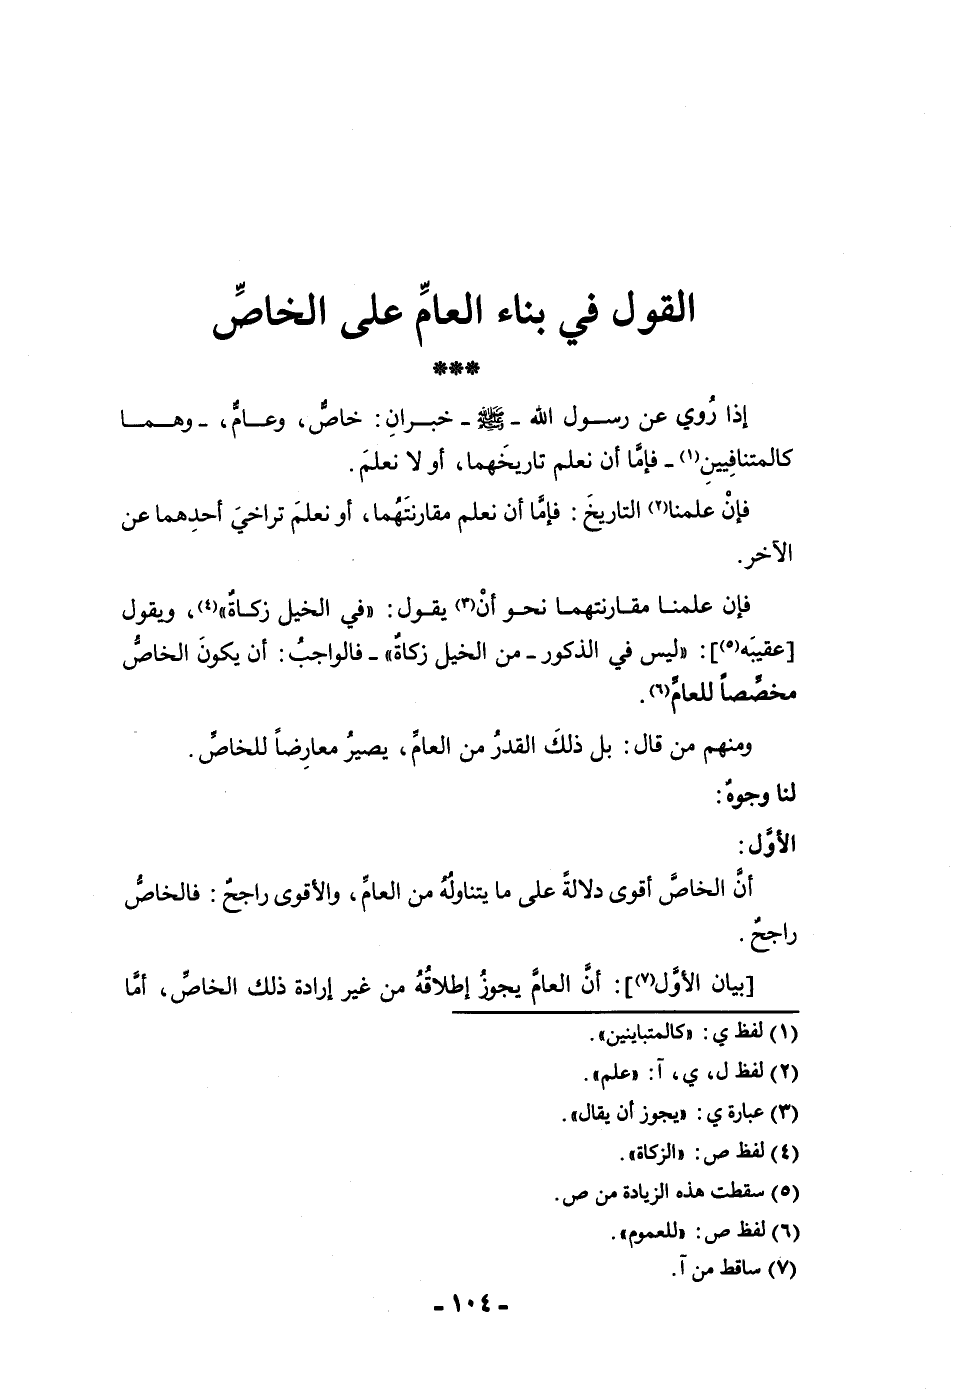 القول في بناء العامِّ على الخاصِّ
***
إذا رُوي عن رسول الله ـ ﷺ ـ خبرانِ: خاصٌّ، وعامٌّ، ـ وهما
كالمتنافِيينِ(١) ـ فإمَّا أن نعلم تاريخَهما، أو لا نعلمَ.
فإنْ علمنا(٢) التاريخَ: فإمَّا أن نعلم مقارنتَهُما، أو نعلمَ تراخيَ أحدِهما عن
الآخر.
فإن علمنا مقارنتهما نحو أنْ(٣) يقول: «في الخيل زكاةٌ»(٤)، ويقول
[عقيبَه(٥)]: «ليس في الذكور ـ من الخيل زكاةٌ» ـ فالواجبُ: أن يكونَ الخاصُّ
مخصِّصاً للعامِّ(٦).
ومنهم من قال: بل ذلكَ القدرُ من العامِّ، يصيرُ معارِضاً للخاصِّ.
لنا وجوهٌ:
الأوَّل:
أنَّ الخاصَّ أقوى دلالةً على ما يتناولُهُ من العامِّ، والأقوى راجحٌ: فالخاصُّ
راجحٌ.
[بيان الأوَّل(٧)]: أنَّ العامَّ يجوزُ إطلاقُهُ من غير إرادة ذلك الخاصِّ، أمَّا
(١) لفظ ي: «كالمتباينين».
(٢) لفظ ل، ي، آ: «علم».
(٣) عبارة ي: «يجوز أن يقال».
(٤) لفظ ص: «الزكاة».
(٥) سقطت هذه الزيادة من ص.
(٦) لفظ ص: «للعموم».
(٧) ساقط من آ.
- ١٠٤ -